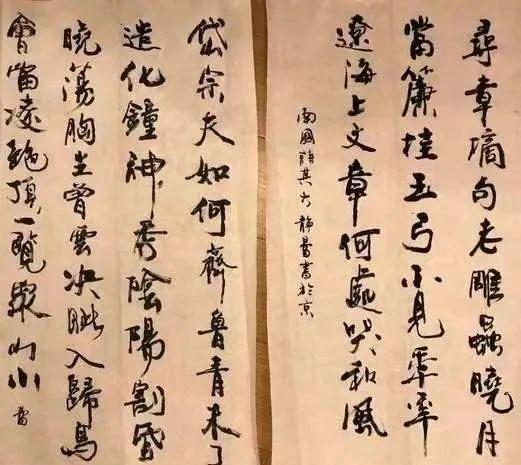 尋章摘句老雕蟲曉月
當簾挂玉弓不見年年
遼海上文章何處哭秋風
南園詩其六 靜書於京
岱宗夫如何齊魯青未了
造化鐘神秀陰陽割昏
曉蕩胸生曾雲決眦入歸鳥
會當凌絕頂一覽衆山小